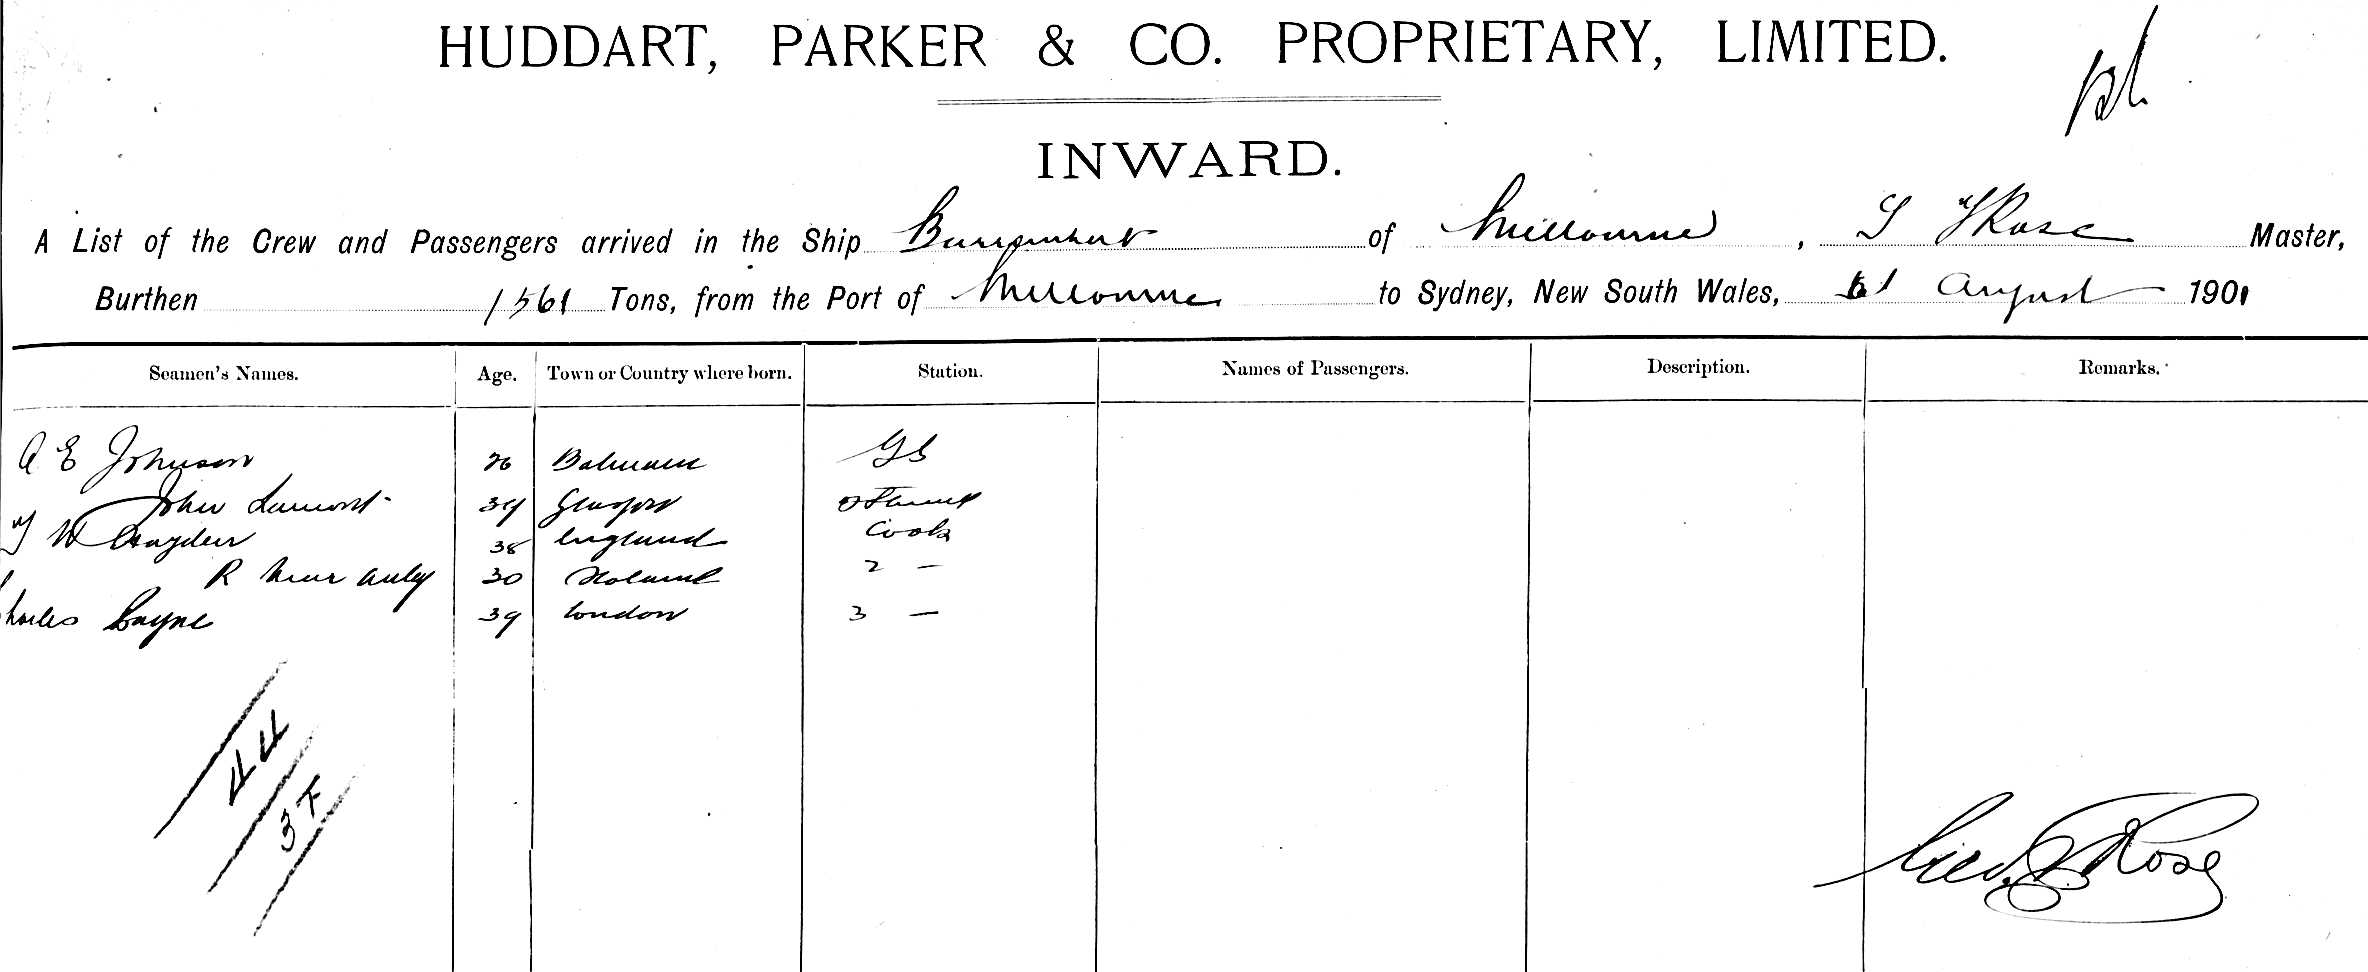 HUDDART, PARKER & CO. PROPRIETARY, LIMITED.
INWARD.
A List of the Crew and Passengers arrived in the Ship Burrumbeet of Melbourne, G F Rose Master,
Burthen 1561 Tons, from the Port of Melbourne to Sydney, New South Wales, August 1901
Seamen's Names. Age. Town or Country where born. Station. Names of Passengers. Description. Remarks.
A E Johnson 26 Balmain GS
John Lamont 39 Glasgow
W Hayden 38 England Cook
R 30 2 —
Charles Bayne 39 London 3 —
44
37
Geo. F. Rose